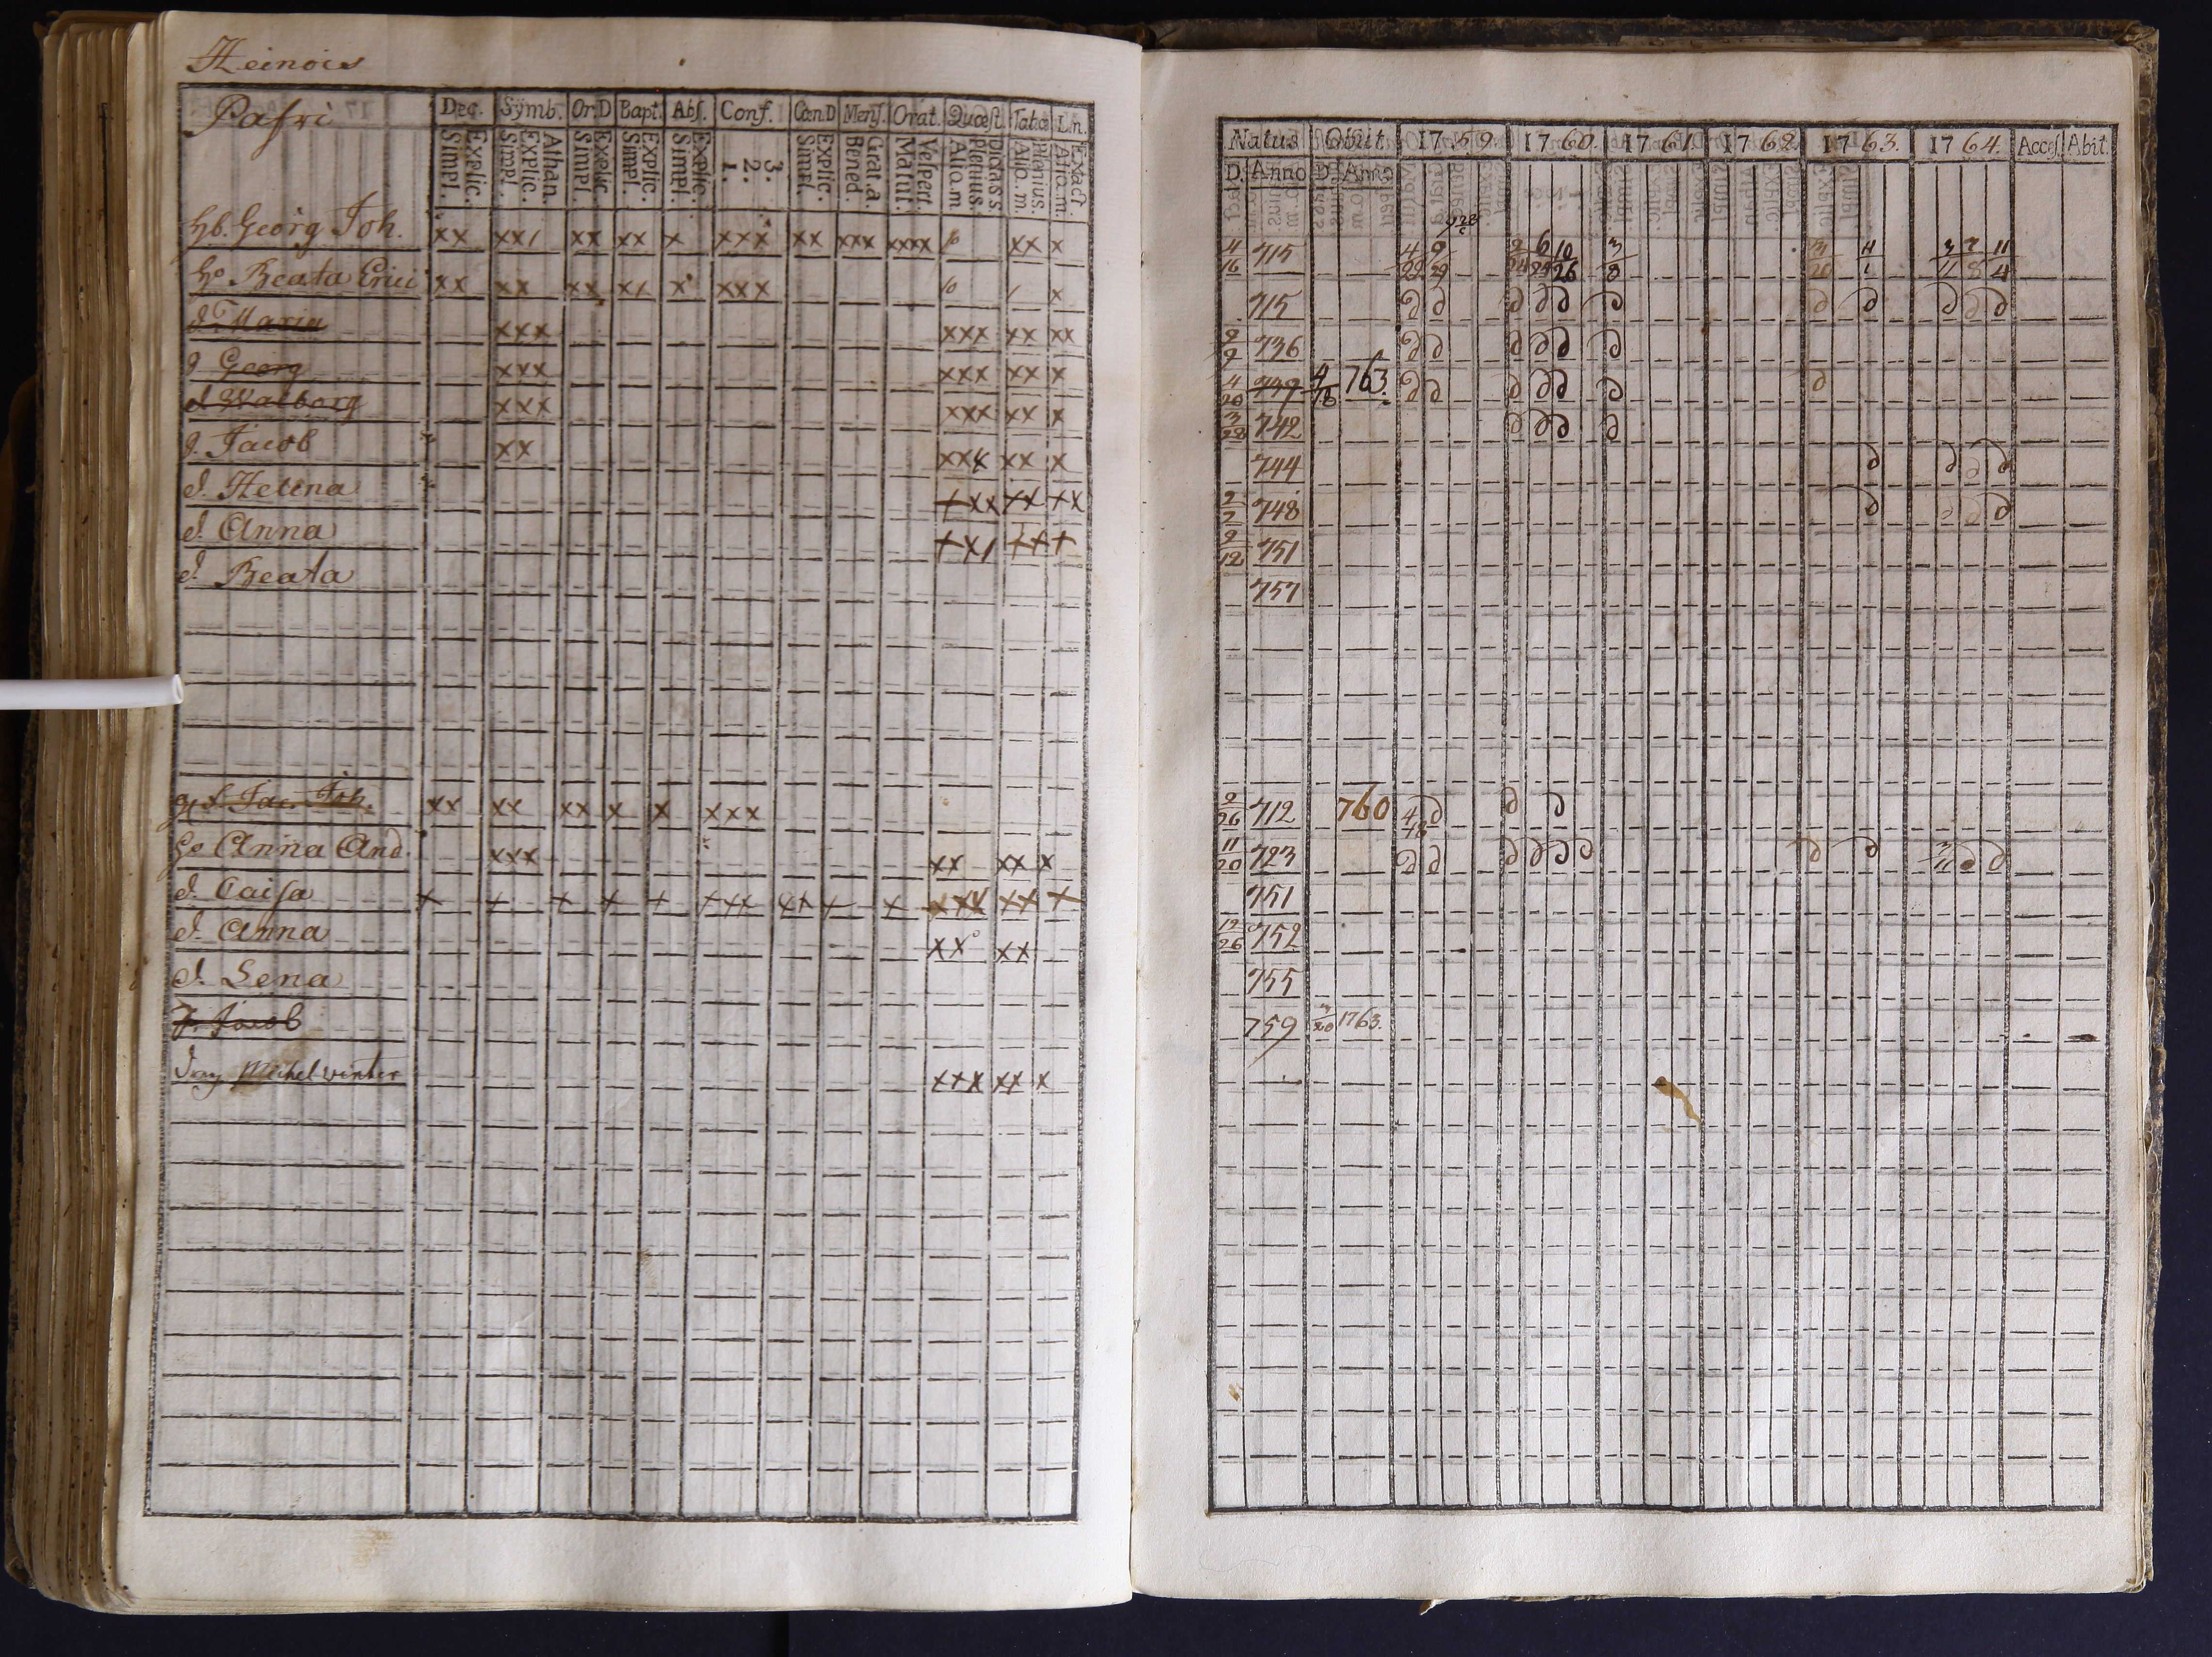 Heinois
Pafri
Dec. Symb. Or.D Bapt. Abs. Conf. Cœn.D Mens. Orat. Quæst. Tabæ L.n.
Explic. Simpl. Athan. Explic. Simpl. Explic. Simpl. Explic. Simpl. Explic. Simpl. 3. 2. 1. Explic. Simpl. Grat.a. Bened. Vespert. Matut. Plenius. Alio.m. Plenius. Alio.m. Exact. Alio.m.
hb. Georg Joh. xx xx/ xx xx x xxx xx xxx xxxx xx x
ho Beata Erici xx xx xx x/ x xxx / x
d. Maria xxx xxx xx xx
g Georg xxx xxx xx x
d Walborg xxx xxx xx x
g. Jacob xx xxx xx x
d. Helena xxx xx xx
d. Anna xx/ xx x
d. Beata
Jac. Joh. xx xx xx x x xxx
ho Anna And. xxx xx xx x
d. Caisa x x x x x xxx xx x x xxx xx x
d. Anna xx xx
d. Lena
Jacob
Michel winter xxx xx x
Natus Obiit. 1759. 1760. 1761. 1762. 1763. 1764. Acces. Abit.
D. Anno D. Anno
4/16 715 4/22 9/29 2/24 6/29 10/26 3/8 3/20 4/1 3/11 7/8 11/4
715
2/9 736
4/20 739 4/16 763.
3/28 742
744
2/2 748
9/12 751
757
9/26 712 760 4/18
11/20 723 3/11
751
12/26 752
755
759 3/20 1763.